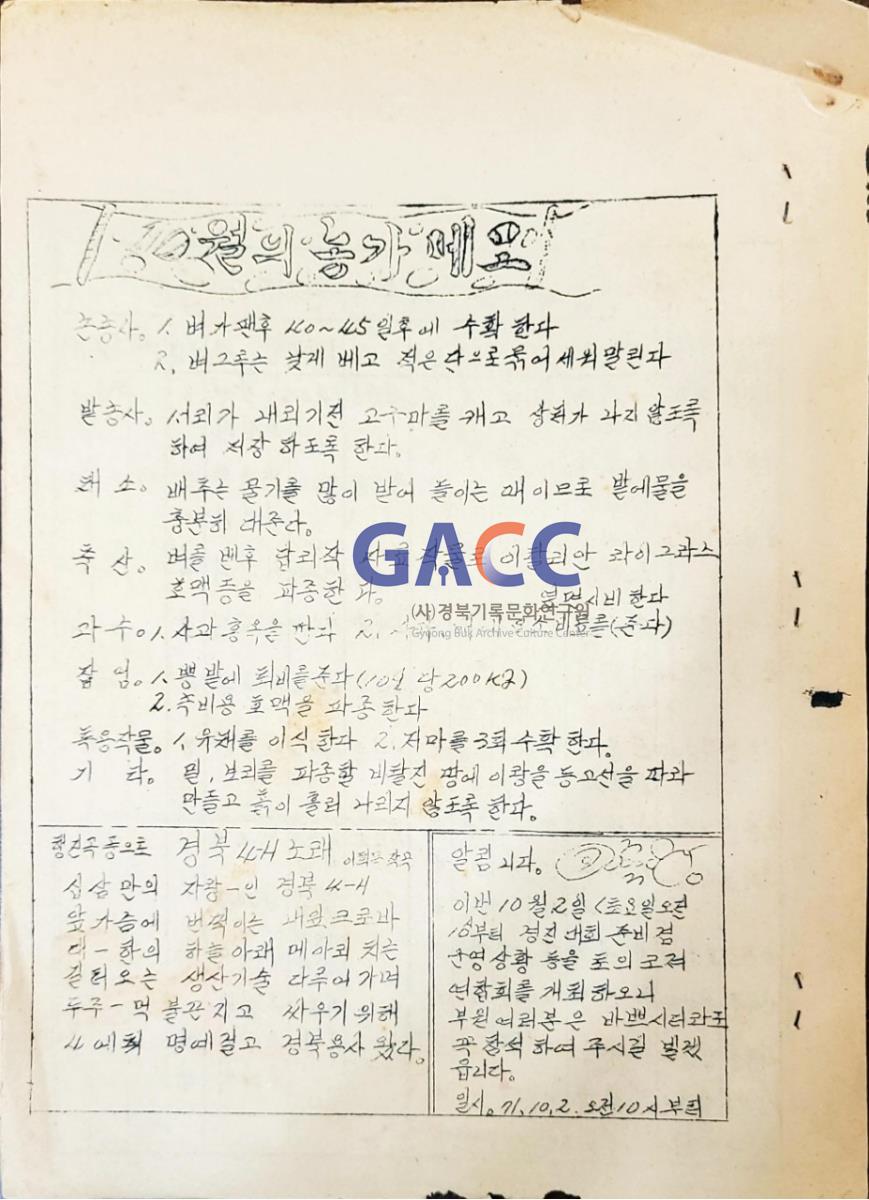 10월의 농가 메모
논농사. 1. 벼가팬후 40~45일후에 수확 한다
2. 벼그루는 낮게 베고 적은단으로묶어세워말린다
밭농사. 서리가 내리기전 고구마를 캐고 상처가 나지 않도록
하여 저장 하도록 한다.
채 소. 배추는 물기를 많이 받아 들이는 때 이므로 밭에물을
충분히 대준다.
축 산. 벼를 벤후 답리작 사료작물로 이탈리안 라이그라스
호맥등을 파종한 다.
GACC
(사)경북기록문화연구원
Gyeong Buk Archive Culture Center
시비 한다
과 수. 1. 사과 홍옥을 딴다 2. 비료를(준다)
잠 업. 1. 뽕 밭에 퇴비를준다(10a 당 200K)
2. 축비용 호맥을 파종한다
특용작물. 1. 유채를 이식 한다 2. 저마를 3회 수확 한다.
기 타. 밀, 보리를 파종할 비탈진 땅에 이랑을 등고선을 따라
만들고 흙이 흘러 나리지 않도록 한다.
행진곡 풍으로 경북 4-H 노래 작곡
십삼 만의 자랑-인 경북 4-H
앞가슴에 번쩍이는 네잎크로바
대-한의 하늘아래 메아리 치는
길터오는 생산기술 다루어 가며
두주-먹 불끈 지고 싸우기 위해
4에취 명예걸고 경북용사 왔다.
알림 니다.
이번 10월 2일 (토요일오전
10부터 경진 대회 준비 겸
운영 상황 등을 토의 코저
연합회를 개최 하오니
부원 여러분은 바쁘시더라도
꼭 참석 하여 주시길 빌겠
읍니다.
일시. 71. 10. 2. 오전10시부터